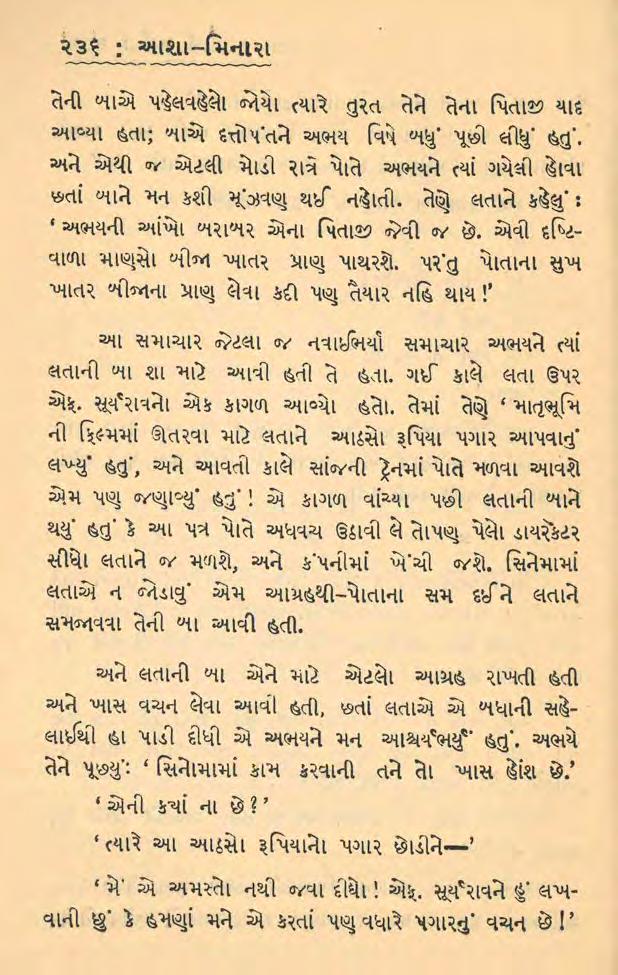 ૨૩૬ : આશા–મિનારા
તેની બાએ પહેલવહેલો જોયો ત્યારે તુરત તેને તેના પિતાજી યાદ
આવ્યા હતા; બાએ દત્તોપંતને અભય વિષે બધું પૂછી લીધું હતું.
અને એથી જ એટલી મોડી રાત્રે પોતે અભયને ત્યાં ગયેલી હોવા
છતાં બાને મન કશી મૂંઝવણ થઈ નહોતી. તેણે લતાને કહેલું :
‘ અભયની આંખો બરાબર એના પિતાજી જેવી જ છે. એવી દૃષ્ટિ-
વાળા માણસો બીજા ખાતર પ્રાણ પાથરશે. પરંતુ પોતાના સુખ
ખાતર બીજાના પ્રાણ લેવા કદી પણ તૈયાર નહિ થાય !’
આ સમાચાર જેટલા જ નવાઈભર્યા સમાચાર અભયને ત્યાં
લતાની બા શા માટે આવી હતી તે હતા. ગઈ કાલે લતા ઉપર
એફ. સૂર્યરાવનો એક કાગળ આવ્યો હતો. તેમાં તેણે ‘ માતૃભૂમિ
ની ફિલ્મમાં ઊતરવા માટે લતાને આઠસો રૂપિયા પગાર આપવાનું
લખ્યું હતું, અને આવતી કાલે સાંજની ટ્રેનમાં પોતે મળવા આવશે
એમ પણ જણાવ્યું હતું ! એ કાગળ વાંચ્યા પછી લતાની બાને
થયું હતું કે આ પત્ર પોતે અધવચ ઉઠાવી લે તોપણ પેલો ડાયરેક્ટર
સીધો લતાને જ મળશે, અને કંપનીમાં ખેંચી જશે. સિનેમામાં
લતાએ ન જોડાવું એમ આગ્રહથી–પોતાના સમ દઈને લતાને
સમજાવવા તેની બા આવી હતી.
અને લતાની બા એને માટે એટલો આગ્રહ રાખતી હતી
અને ખાસ વચન લેવા આવી હતી, છતાં લતાએ એ બધાની સહે-
લાઈથી હા પાડી દીધી એ અભયને મન આશ્ચર્યભર્યું હતું. અભયે
તેને પૂછયું: ‘ સિનેામામાં કામ કરવાની તને તો ખાસ હોંશ છે.’
‘ એની ક્યાં ના છે?’
‘ત્યારે આ આઠસો રૂપિયાનો પગાર છોડીને—’
‘મેં એ અમસ્તો નથી જવા દીધો ! એફ. સૂર્યરાવને હું લખ-
વાની છું કે હમણાં મને એ કરતાં પણ વધારે પગારનું વચન છે !’